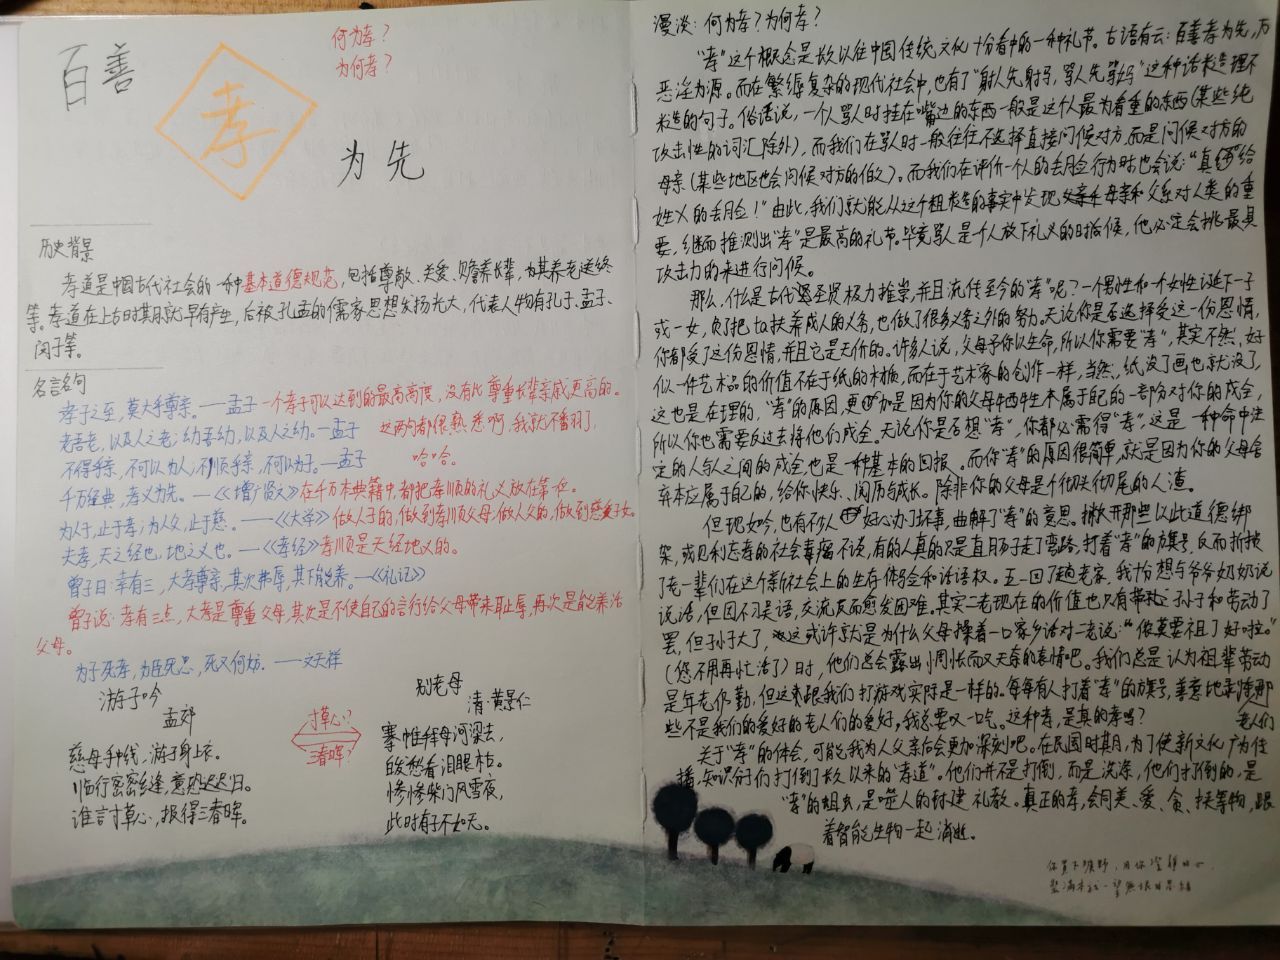 百善
孝
为先
何为孝？
为何孝？
历史背景
孝道是中国古代社会的一种基本道德规范，包括尊敬、关爱、赡养长辈，为其养老送终
等。孝道在上古时期就早有产生，后被孔孟的儒家思想发扬光大，代表人物有孔子、孟子、
闵子等。
名言名句
孝子之至，莫大乎尊亲。——孟子 一个孝子可以达到的最高高度，没有比尊重长辈亲戚更高的。
老吾老，以及人之老；幼吾幼，以及人之幼。—孟子 这两句都很熟悉啊，我就不翻了，
不得乎亲，不可以为人；不顺乎亲，不可以为子。—孟子 哈哈。
千万经典，孝义为先。—《增广贤文》在千万本典籍中，都把孝顺的礼义放在第一位。
为人子，止于孝；为人父，止于慈。——《大学》做人子的，做到孝顺父母；做人父的，做到慈爱子女。
夫孝，天之经也，地之义也。—《孝经》孝顺是天经地义的。
曾子曰：孝有三，大孝尊亲，其次弗辱，其下能养。—《礼记》
曾子说：孝有三点，大孝是尊重父母，其次是不使自己的言行给父母带来耻辱，再次是能养活
父母。
为子死孝，为臣死忠，死又何妨。——文天祥
游子吟
孟郊
慈母手中线，游子身上衣。
临行密密缝，意恐迟迟归。
谁言寸草心，报得三春晖。
寸草心？
三春晖？
别老母
清·黄景仁
搴帷拜母河梁去，
白发愁看泪眼枯。
惨惨柴门风雪夜，
此时有子不如无。
漫谈：何为孝？为何孝？
“孝”这个概念是长久以往中国传统文化十分看中的一种礼节。古语有云：百善孝为先，万
恶淫为源。而在繁缛复杂的现代社会中，也有了“射人先射马，骂人先骂妈”这种话糙理不
糙的句子。俗话说，一个人骂人时挂在嘴边的东西一般是这个人最为看重的东西（某些纯
攻击性的词汇除外），而我们在骂人时一般往往不选择直接问候对方，而是问候对方的
母亲（某些地区也会问候对方的伯父）。而我们在评价一个人的丢脸行为时也会说：“真给
姓乂的丢脸！”由此，我们就能从这个粗糙的事实中发现母亲和父系对人类的重
要，继而推测出“孝”是最高的礼节。毕竟骂人是个人放下礼义的时候，他必定会挑最具
攻击力的来进行问候。
那么，什么是古代圣贤极力推崇，并且流传至今的“孝”呢？一个男性和一个女性诞下一子
或一女，负了把ta扶养成人的义务，也做了很多义务之外的努力。无论你是否选择受这一份恩情，
你都受了这份恩情，并且它是无价的。许多人说，父母予你以生命，所以你需要“孝”，其实不然，好
似一件艺术品的价值不在于纸的材质，而在于艺术家的创作一样，当然，纸没了画也就没了，
这也是在理的，“孝”的原因，更加是因为你的父母牺牲本属于自己的一部份对你的成全，
所以你也需要反过去将他们成全。无论你是否想“孝”，你都必需得“孝”，这是一种命中注
定的人与人之间的成全，也是一种基本的回报。而你“孝”的原因很简单，就是因为你的父母舍
弃本应属于自己的，给你快乐、阅历与成长。除非你的父母是个彻头彻尾的人渣。
但现如今，也有不少人好心办了坏事，曲解了“孝”的意思。撇开那些以此道德绑
架，或见利忘孝的社会毒瘤不说，有的人真的只是直肠子走了弯路，打着“孝”的旗号，反而折损
了老一辈们在这个新社会上的生存体验和话语权。五一回了趟老家，我十分想与爷爷奶奶说
说话，但因不习吴语，交流反而愈发困难。其实二老现在的价值也只有带孙子和劳动了
罢，但孙子大了，这或许就是为什么父母操着一口家乡话对二老说：“侬莫要不且了好啦。”
（您不用再忙活了）时，他们总会露出惆怅而又无奈的表情吧。我们总是认为祖辈劳动
是年老仍勤，但这来跟我们打游戏实际是一样的。每每有人打着“孝”的旗号，善意地剥夺那
些不是我们的爱好的老人们的爱好，我总要叹一吃。这种孝，是真的孝吗？ 老人们
关于“孝”的体会，可能我为人父亲后会更加深刻吧。在民国时期，为了使新文化广为传
播，知识分子们打倒了长久以来的“孝道”。他们并不是打倒，而是洗涤，他们打倒的，是
“孝”的蛆虫，是噬人的封建礼教。真正的孝，会同美、爱、食、挟等物，跟
着智能生物一起消逝。